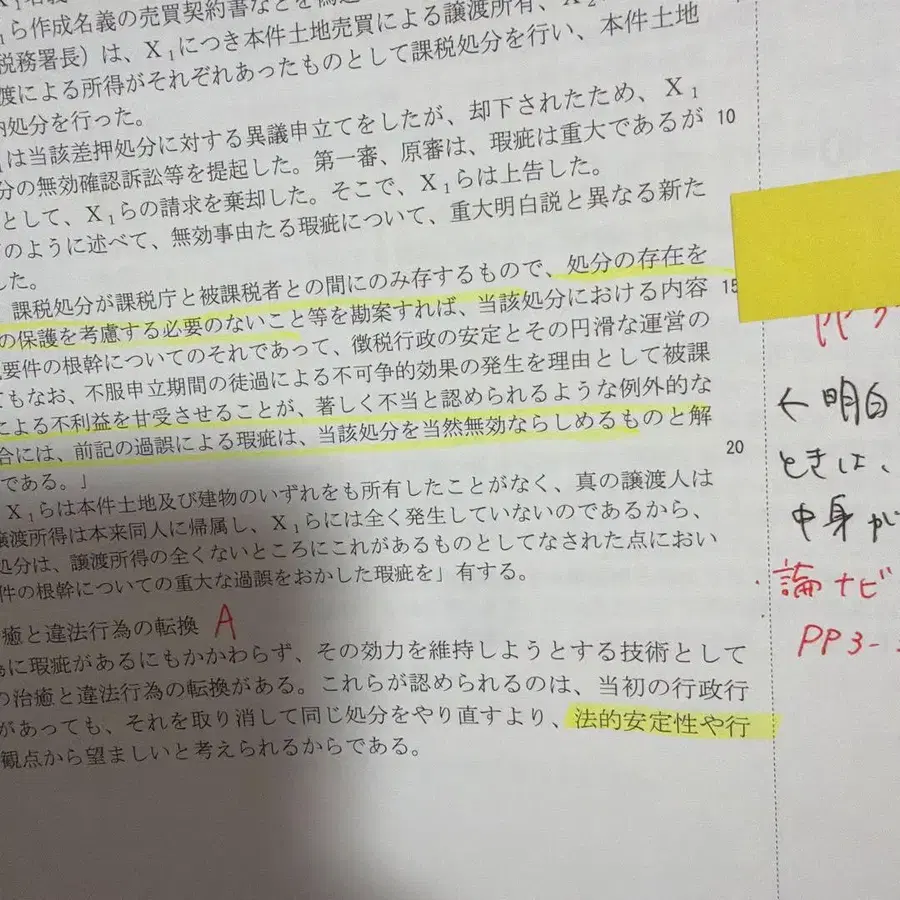 ら作成名義の売買契約書などを偽造
税務署長）は、Ｘ₁につき本件土地売買による譲渡所有、Ｘ₂
渡による所得がそれぞれあったものとして課税処分を行い、本件土地
処分を行った。
は当該差押処分に対する異議申立てをしたが、却下されたため、Ｘ₁ 10
分の無効確認訴訟等を提起した。第一審、原審は、瑕疵は重大であるが
として、Ｘ₁らの請求を棄却した。そこで、Ｘ₁らは上告した。
のように述べて、無効事由たる瑕疵について、重大明白説と異なる新た
した。
課税処分が課税庁と被課税者との間にのみ存するもので、処分の存在を 15
の保護を考慮する必要のないこと等を勘案すれば、当該処分における内容
要件の根幹についてのそれであって、徴税行政の安定とその円滑な運営の
てもなお、不服申立期間の徒過による不可争的効果の発生を理由として被課
による不利益を甘受させることが、著しく不当と認められるような例外的な
合には、前記の過誤による瑕疵は、当該処分を当然無効ならしめるものと解 20
である。」
Ｘ₁らは本件土地及び建物のいずれをも所有したことがなく、真の譲渡人は
譲渡所得は本来同人に帰属し、Ｘ₁らには全く発生していないのであるから、
処分は、譲渡所得の全くないところにこれがあるものとしてなされた点におい
件の根幹についての重大な過誤をおかした瑕疵を」有する。
癒と違法行為の転換 A
為に瑕疵があるにもかかわらず、その効力を維持しようとする技術として
の治癒と違法行為の転換がある。これらが認められるのは、当初の行政行
があっても、それを取り消して同じ処分をやり直すより、法的安定性や行
観点から望ましいと考えられるからである。
←明白
ときは、
中身が
論ナビ
PP3-